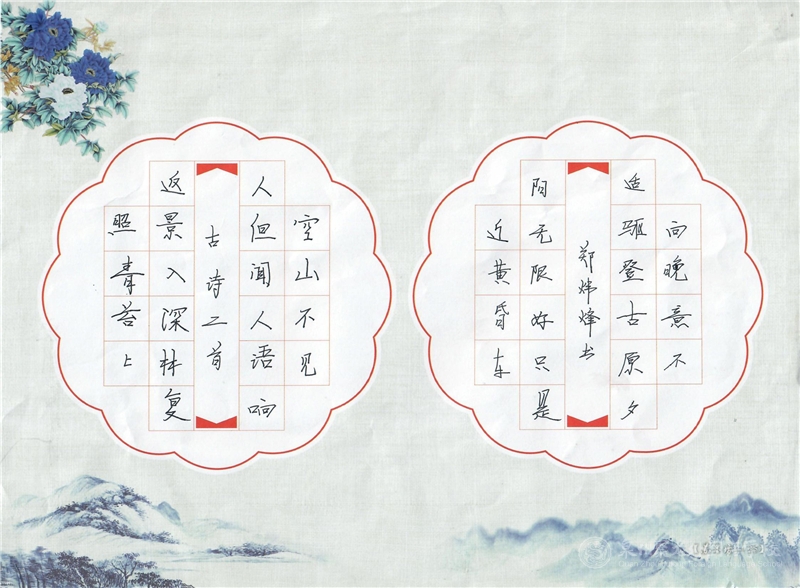 空山不见
人但闻人语响
古诗二首
返景入深林复
照青苔上
向晚意不
适驱登古原夕
郑炜烽书
阳无限好只是
近黄昏车